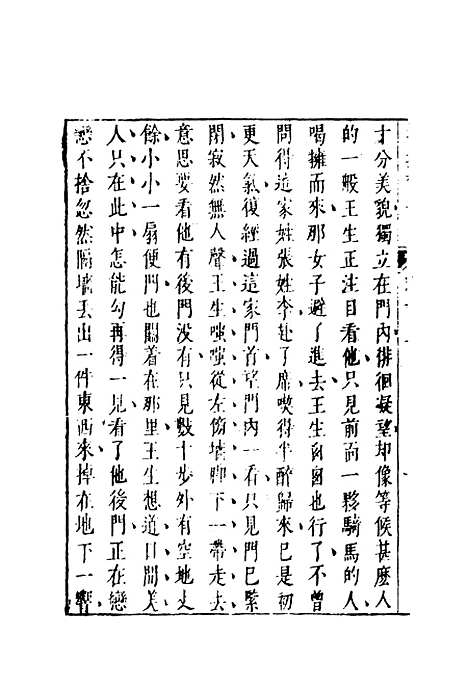 才分美貌獨立在門內徘徊凝望却像等候甚麼人
的一般王生正注目看他只見前面一夥騎馬的人
喝擁而來那女子避了進去王生匆匆也行了不曾
問得這家姓張姓李赴了席喫得半醉歸來已是初
更天氣復經過這家門首望門內一看只見門已緊
閉寂然無人聲王生嗤嗤從左傍墻脚下一帶走去
意思要看他有後門没有只見數十步外有空地丈
餘小小一扇便門也關着在那里王生想道日間美
人只在此中怎能勾再得一見看了他後門正在戀
戀不捨忽然隔墻丟出一件東西來掉在地下一響